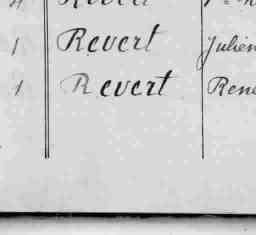 1 Revert Julien
1 Revert René